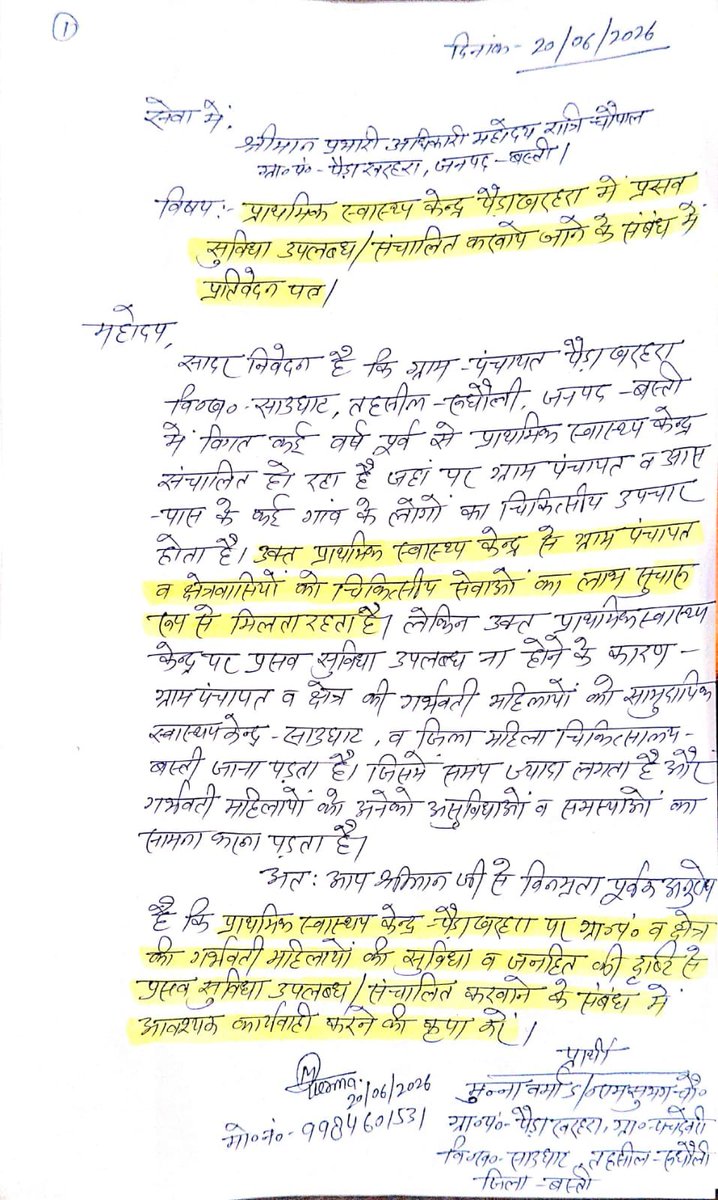 ①
दिनांक- 20/06/2026
सेवा में,
श्रीमान प्रभारी अधिकारी महोदय रात्रि चौपाल
ग्रा०पं०- पैड़ा खरहरा, जनपद-बस्ती।
विषय:- प्राथमिक स्वास्थ्य केन्द्र पैड़ाखरहरा में प्रसव
सुविधा उपलब्ध/संचालित करवाये जाने के संबंध में
प्रतिवेदन पत्र।
महोदय,
सादर निवेदन है कि ग्राम-पंचायत पैड़ा खरहरा
वि०ख०-साउघाट, तहसील-रूधौली, जनपद-बस्ती
में विगत कई वर्ष पूर्व से प्राथमिक स्वास्थ्य केन्द्र
संचालित हो रहा है जहां पर ग्राम पंचायत व आस
-पास के कई गांव के लोगों का चिकित्सीय उपचार
होता है। उक्त प्राथमिक स्वास्थ्य केन्द्र से ग्राम पंचायत
व क्षेत्रवासियों को चिकित्सीय सेवाओं का लाभ सुचारू
रूप से मिलता रहता है। लेकिन उक्त प्राथमिक स्वास्थ्य
केन्द्र पर प्रसव सुविधा उपलब्ध ना होने के कारण -
ग्राम पंचायत व क्षेत्र की गर्भवती महिलायों को सामुदायिक
स्वास्थ्य केन्द्र-साउघाट, व जिला महिला चिकित्सालय-
बस्ती जाना पड़ता है। जिसमें समय ज्यादा लगता है और
गर्भवती महिलायों को अनेको असुविधाओं व समस्याओं का
सामना करना पड़ता है।
अत: आप श्रीमान जी से विनम्रता पूर्वक अनुरोध
है कि प्राथमिक स्वास्थ्य केन्द्र-पैड़ाखरहरा पर ग्रा०पं० व क्षेत्र
की गर्भवती महिलायों की सुविधा व जनहित की दृष्टि से
प्रसव सुविधा उपलब्ध/संचालित करवाने के संबंध में
आवश्यक कार्यवाही करने की कृपा करें।
प्रार्थी
20/06/2026
मो०नं०- 9984601531
मुन्ना वर्मा S/o
ग्रा०पं०-पैड़ा खरहरा,
वि०ख०-साउघाट, तहसील-रूधौली
जिला-बस्ती